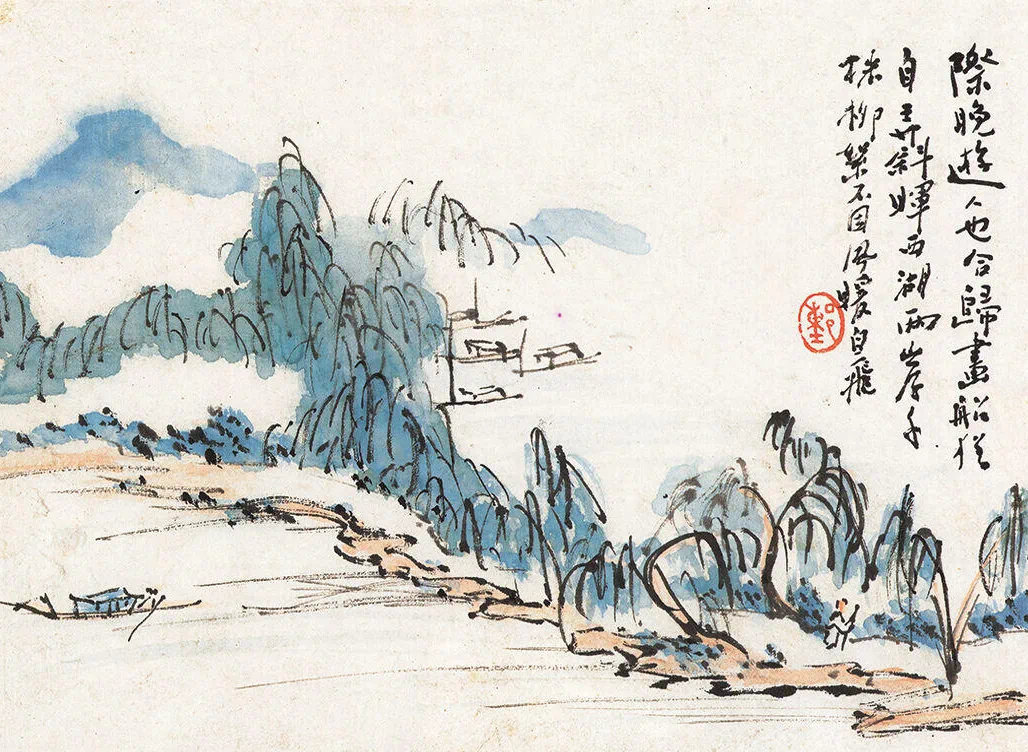 際晚遊人也合歸畫船猶
自弄斜暉西湖兩岸千
株柳絮不因風暖自飛